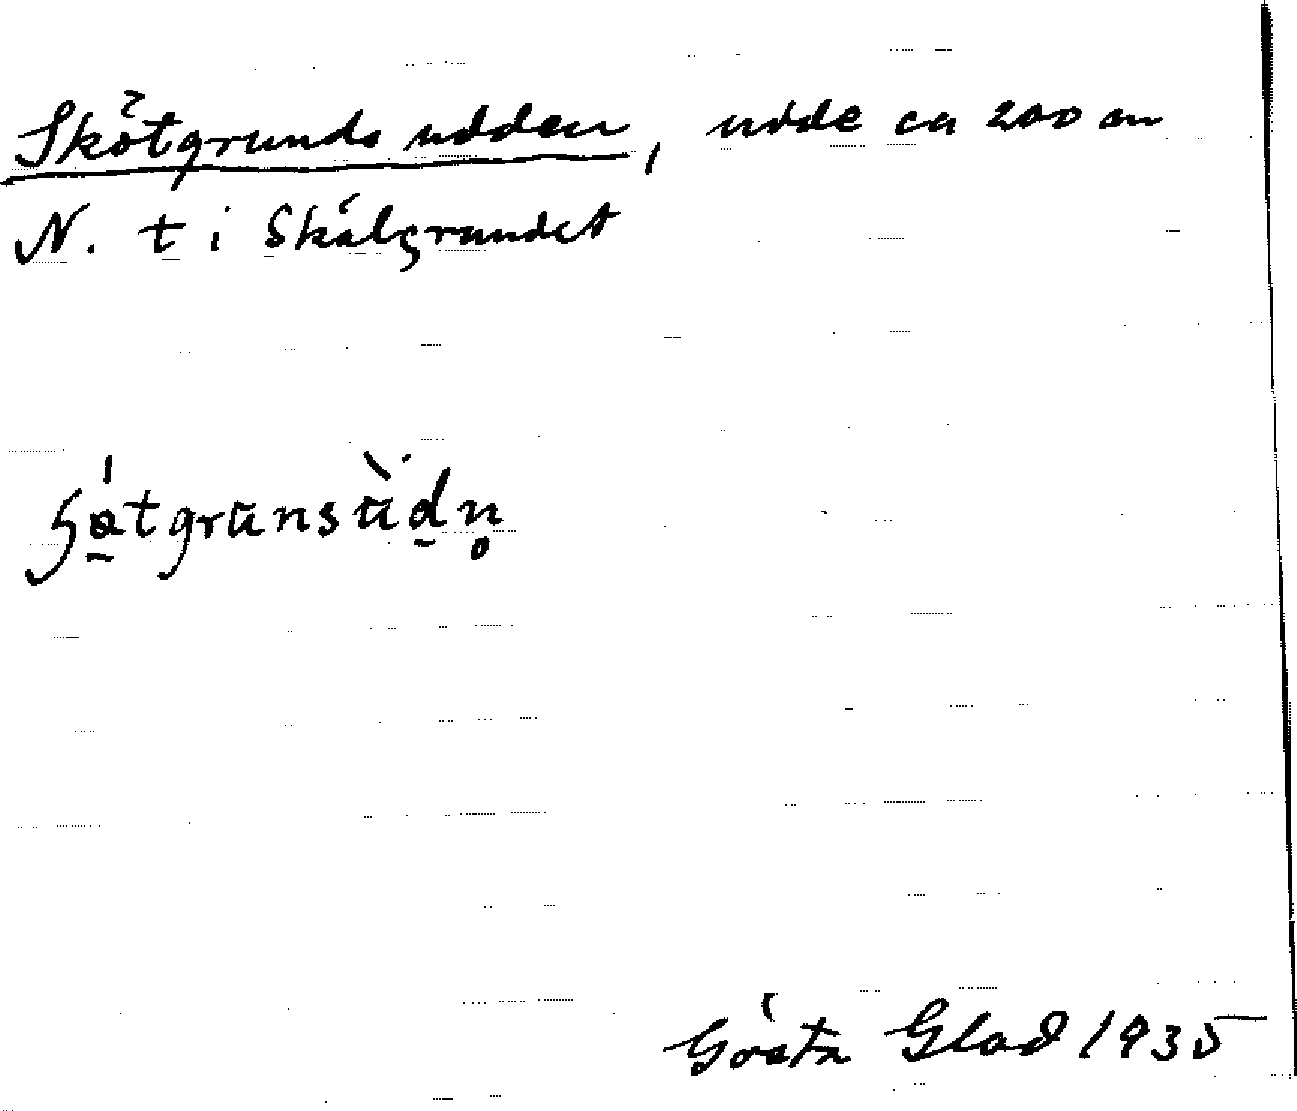 Skötgrunds udden, udde ca 200 m
N. t i Skälgrundet
Gösta Glad 1935